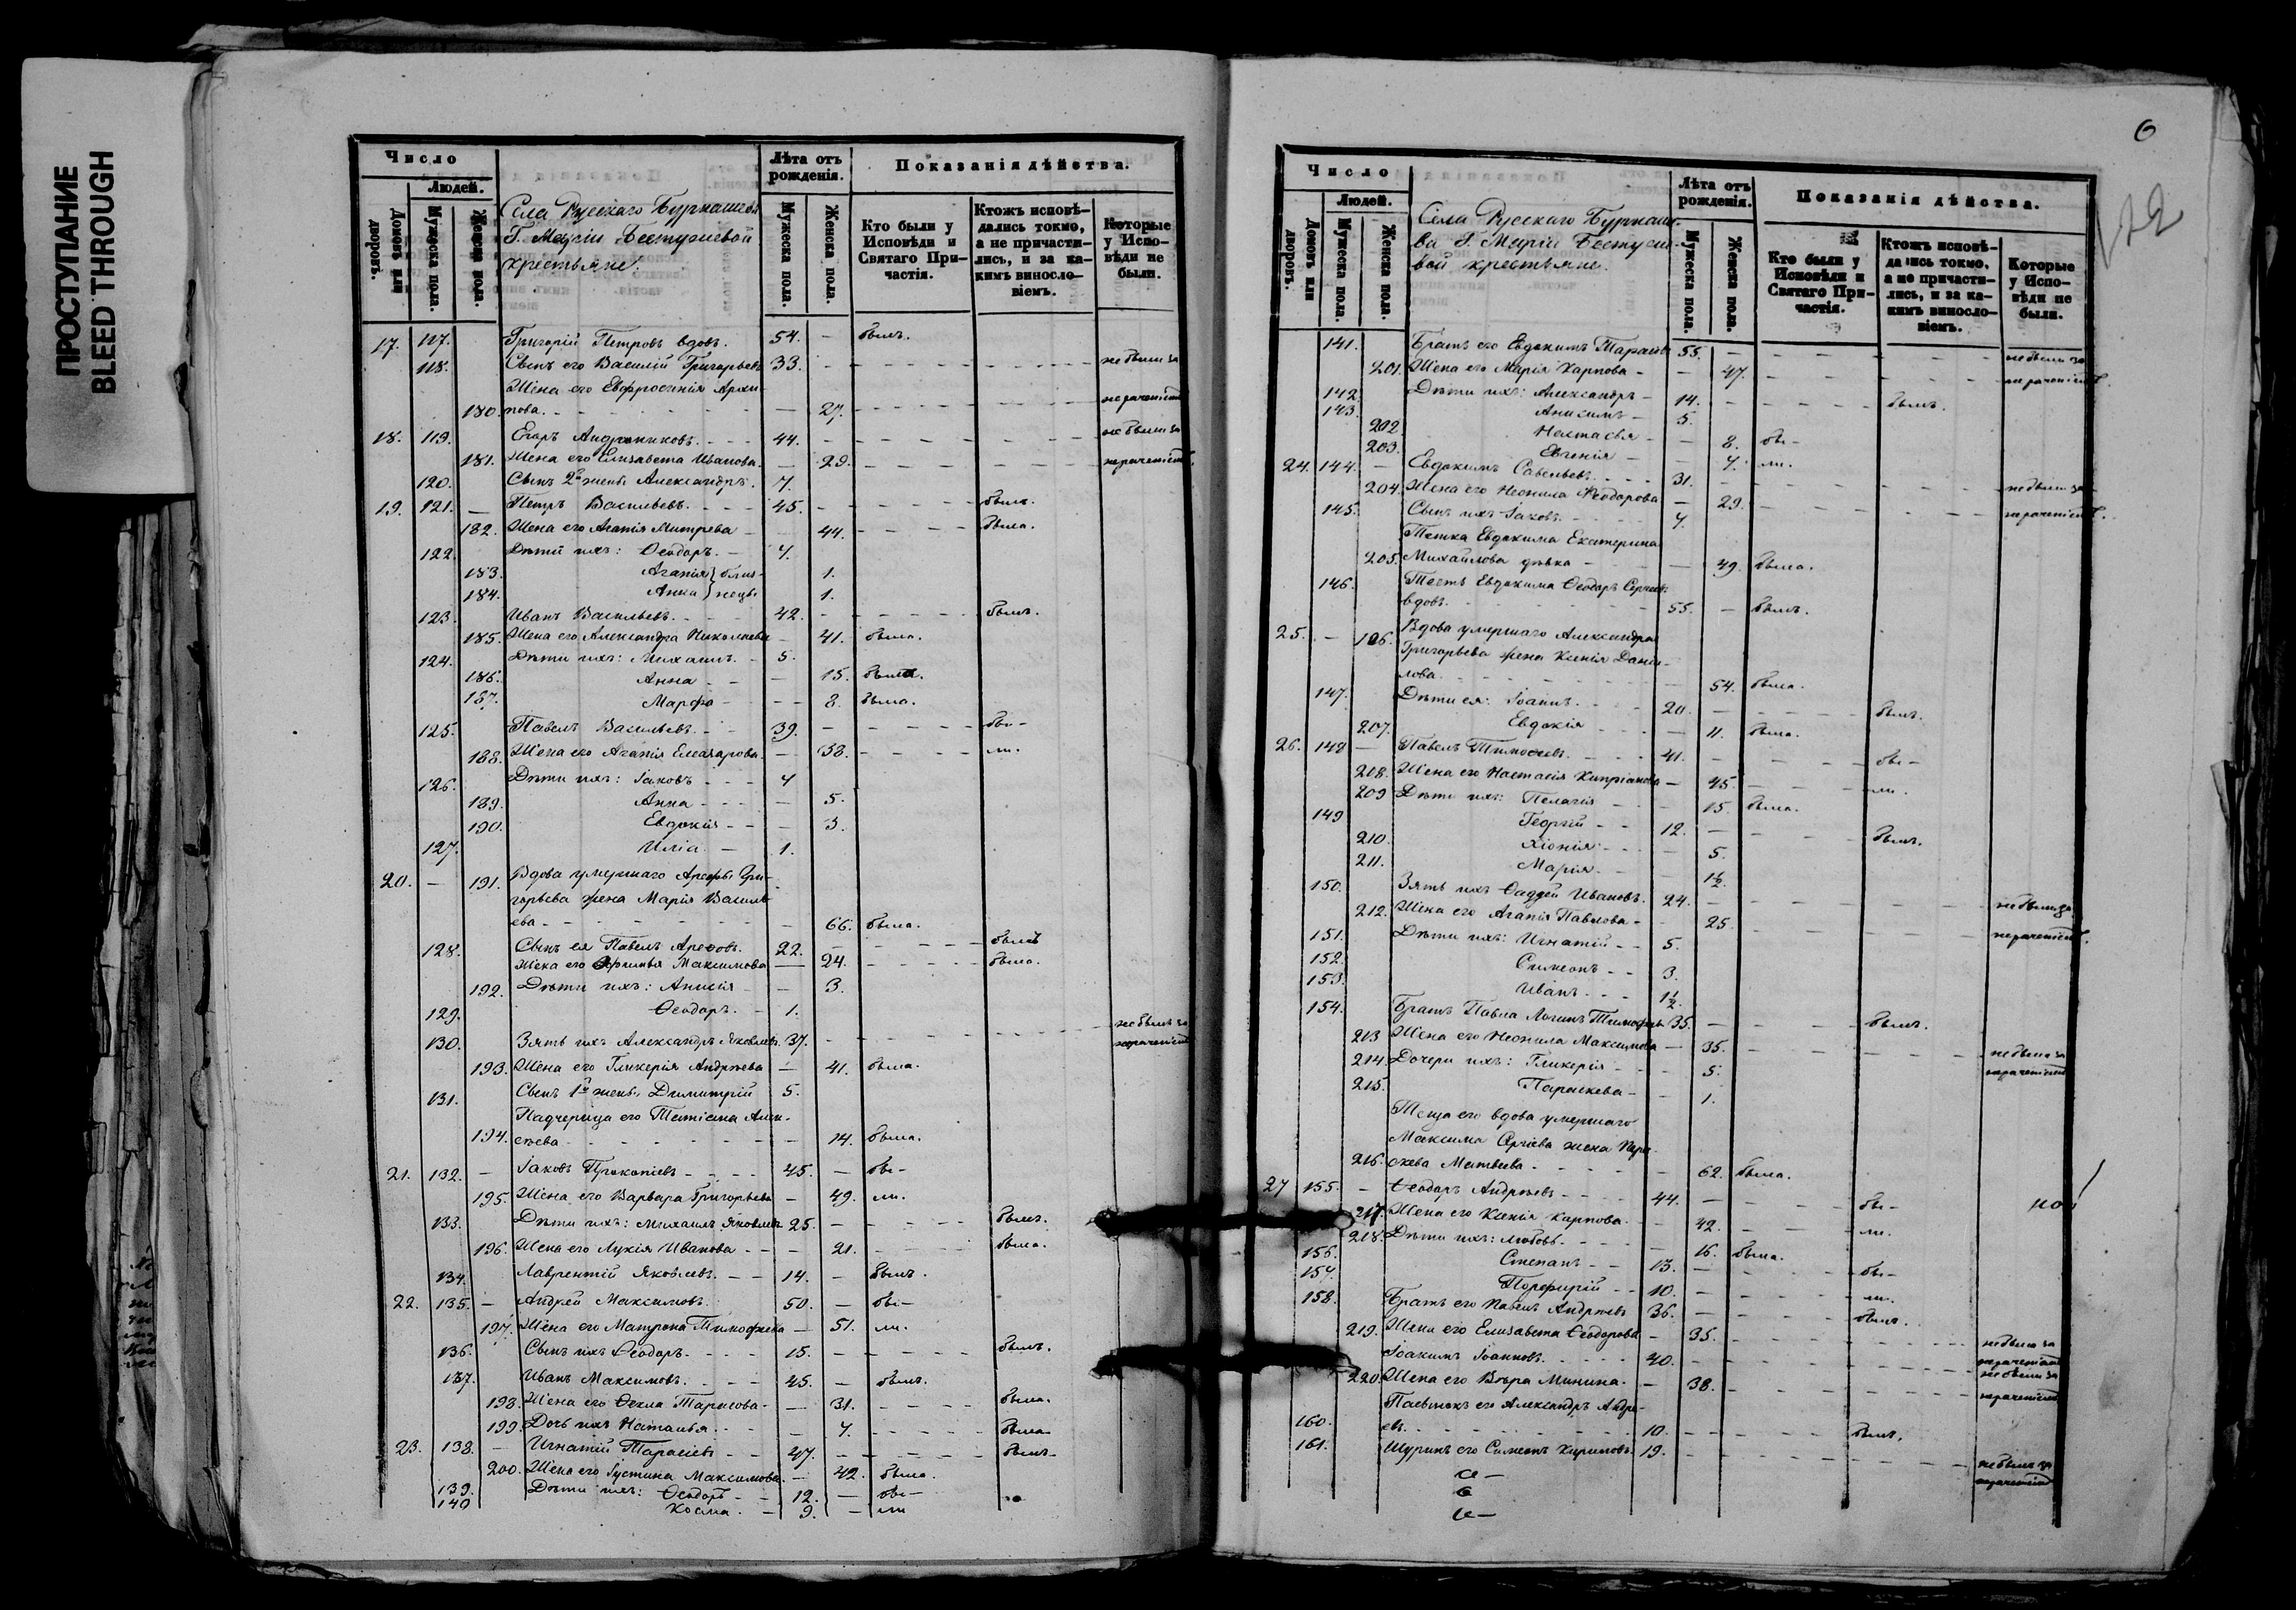 ПРОСТУПАНИЕ
BLEED THROUGH
Число
Людей.
Домовъ или дворовъ.
Мужеска пола.
Женска пола.
Села Русскаго Бурнашева
Г. Маріи Бестужевой
крестьяне.
Лѣта отъ рожденія.
Мужеска пола.
Женска пола.
Показанія дѣйства.
Кто были у Исповѣди и Святаго Причастія.
Ктожъ исповѣдались токмо, а не причастились, и за какимъ винословіемъ.
Которые у Исповѣди не были.
17. 117. Григорій Петровъ вдовъ. 54. — былъ.
118. Сынъ его Василій Григорьевъ 33. не были за
Жена его Евфросинія Архи-
180. пова. — 27. нераченіемъ
18. 119. Егоръ Андрониковъ. 44. не были за
181. Жена его Елизавета Иванова. — 29. нераченіемъ.
120. Сынъ 2й жены Александръ. 7.
19. 121. — Петръ Васильевъ. 45. былъ.
182. Жена его Агапія Митрева — 44. была.
122. Дѣти ихъ: Ѳеодоръ. — 4.
183. Агапія } близ- 1.
184. Анна } нецы 1.
123. Иванъ Васильевъ. 42. былъ.
185. Жена его Александра Николаева — 41. была.
124. Дѣти ихъ: Михаилъ. — 5.
186. Анна — 15. была.
187. Марфа — 8. была.
125. Павелъ Васильевъ. 39. бы-
188. Жена его Агапія Елеазарова. — 38. ли.
126. Дѣти ихъ: Іаковъ 4
189. Анна — 5.
190. Евдокія — 3.
127. Илія. — 1.
20. — 191. Вдова умершаго Арефы Гри-
горьева жена Марія Василь-
ева — 66. была.
128. Сынъ ея Павелъ Арефовъ. 22. былъ
Жена его Максимова — 24. была.
192. Дѣти ихъ: Анисія — 3.
129. Ѳеодоръ. — 1.
130. Зять ихъ Александръ Яковлевъ. 37. не былъ за нераченіемъ
193. Жена его Гликерія Андреева — 41. была.
131. Сынъ 1й жены Димитрій 5.
Падчерица его Татіана Алек-
194. сѣева — 14. была.
21. 132. — Іаковъ Прокопіевъ 45. — бы-
195. Жена его Варвара Григорьева — 49. ли.
133. Дѣти ихъ: Михаилъ Яковлевъ 25. былъ.
196. Жена его Лукія Иванова — 21. была.
134. Лаврентій Яковлевъ. — 14. — былъ.
22. 135. — Андрей Максимовъ. 50. — бы-
197. Жена его Матрона Тимофеева — 51. ли.
136. Сынъ ихъ Ѳеодоръ. 15. былъ.
137. Иванъ Максимовъ. 45. — былъ.
198. Жена его Ѳекла Тарасова — 31. была.
199. Дочь ихъ Наталья. — 7. была
23. 138. — Игнатій Тарасіевъ 47. былъ
200. Жена его Іустина Максимова. — 42. была.
139. Дѣти ихъ: Ѳеодоръ — 12. — бы-
140 Косма. — 9. — ли
6
Число
Людей.
Домовъ или дворовъ.
Мужеска пола.
Женска пола.
Села Русскаго Бурнаше-
ва Г. Маріи Бестуже-
вой крестьяне.
Лѣта отъ рожденія.
Мужеска пола.
Женска пола.
Показанія дѣйства.
Кто были у Исповѣди и Святаго Причастія.
Ктожъ исповѣдались токмо, а не причастились, и за какимъ винословіемъ.
Которые у Исповѣди не были.
141. Братъ его Евдокимъ Тарасіевъ 55. не были за
201. Жена его Марія Карпова — 47. нераченіемъ.
142. Дѣти ихъ: Александръ — 14. былъ.
143. Анисимъ — 5.
202. Настасья — 8. бы-
203. Евгенія — 7. ли.
24. 144. — Евдокимъ Савельевъ. 31. не были за
204. Жена его Неонила Ѳеодорова — 29. нераченіемъ.
145. Сынъ ихъ Іаковъ. 4.
Тетка Евдокима Екатерина
205. Михайлова дѣвка — 49. была.
146. Тесть Евдокима Ѳеодоръ Сергѣевъ
вдовъ. 55. — былъ.
25. — 106. Вдова умершаго Александра
Григорьева жена Ксенія Дани-
лова. 54. была.
147. Дѣти ея: Іоаннъ. 20. былъ.
207. Евдокія — 11. была.
26. 148 — Павелъ Тимофеевъ. 41. бы-
208. Жена его Настасія Кипріанова — 45. ли.
209 Дѣти ихъ: Пелагія — 15. была.
149 Георгій 12. былъ.
210. Хіонія. 5.
211. Марія. 1½.
150. Зять ихъ Фаддей Ивановъ. 24. не были за
212. Жена его Агапія Павлова — 25. нераченіемъ.
151. Дѣти ихъ: Игнатій 5.
152. Симеонъ 3.
153. Иванъ. 1½.
154. Братъ Павла Логинъ Тимофеевъ 35. былъ.
213 Жена его Неонила Максимова — 35. не была за нераченіемъ
214 Дочери ихъ: Гликерія 5.
215. Параскева — 1.
Теща его вдова умершаго
Максима Сергіева жена Пара-
216. скева Матвеева. 62. была.
27 155. — Ѳеодоръ Андреевъ 44. бы-
217. Жена его Ксенія Карпова. — 42. ли.
218. Дѣти ихъ: Любовь. 16. была.
156. Степанъ — 13. бы-
157. Порфирій — 10. ли.
158. Братъ его Павелъ Андреевъ 36. былъ.
219. Жена его Елизавета Ѳеодорова — 35. не была за нераченіемъ
Іоакимъ Іоанновъ. 40. не были за
220. Жена его Вѣра Минина. — 38. нераченіемъ
Пасынокъ его Александръ Андре-
160. евъ. 10. былъ.
161. Шуринъ его Симеонъ Кириловъ. 19. не былъ за нераченіемъ